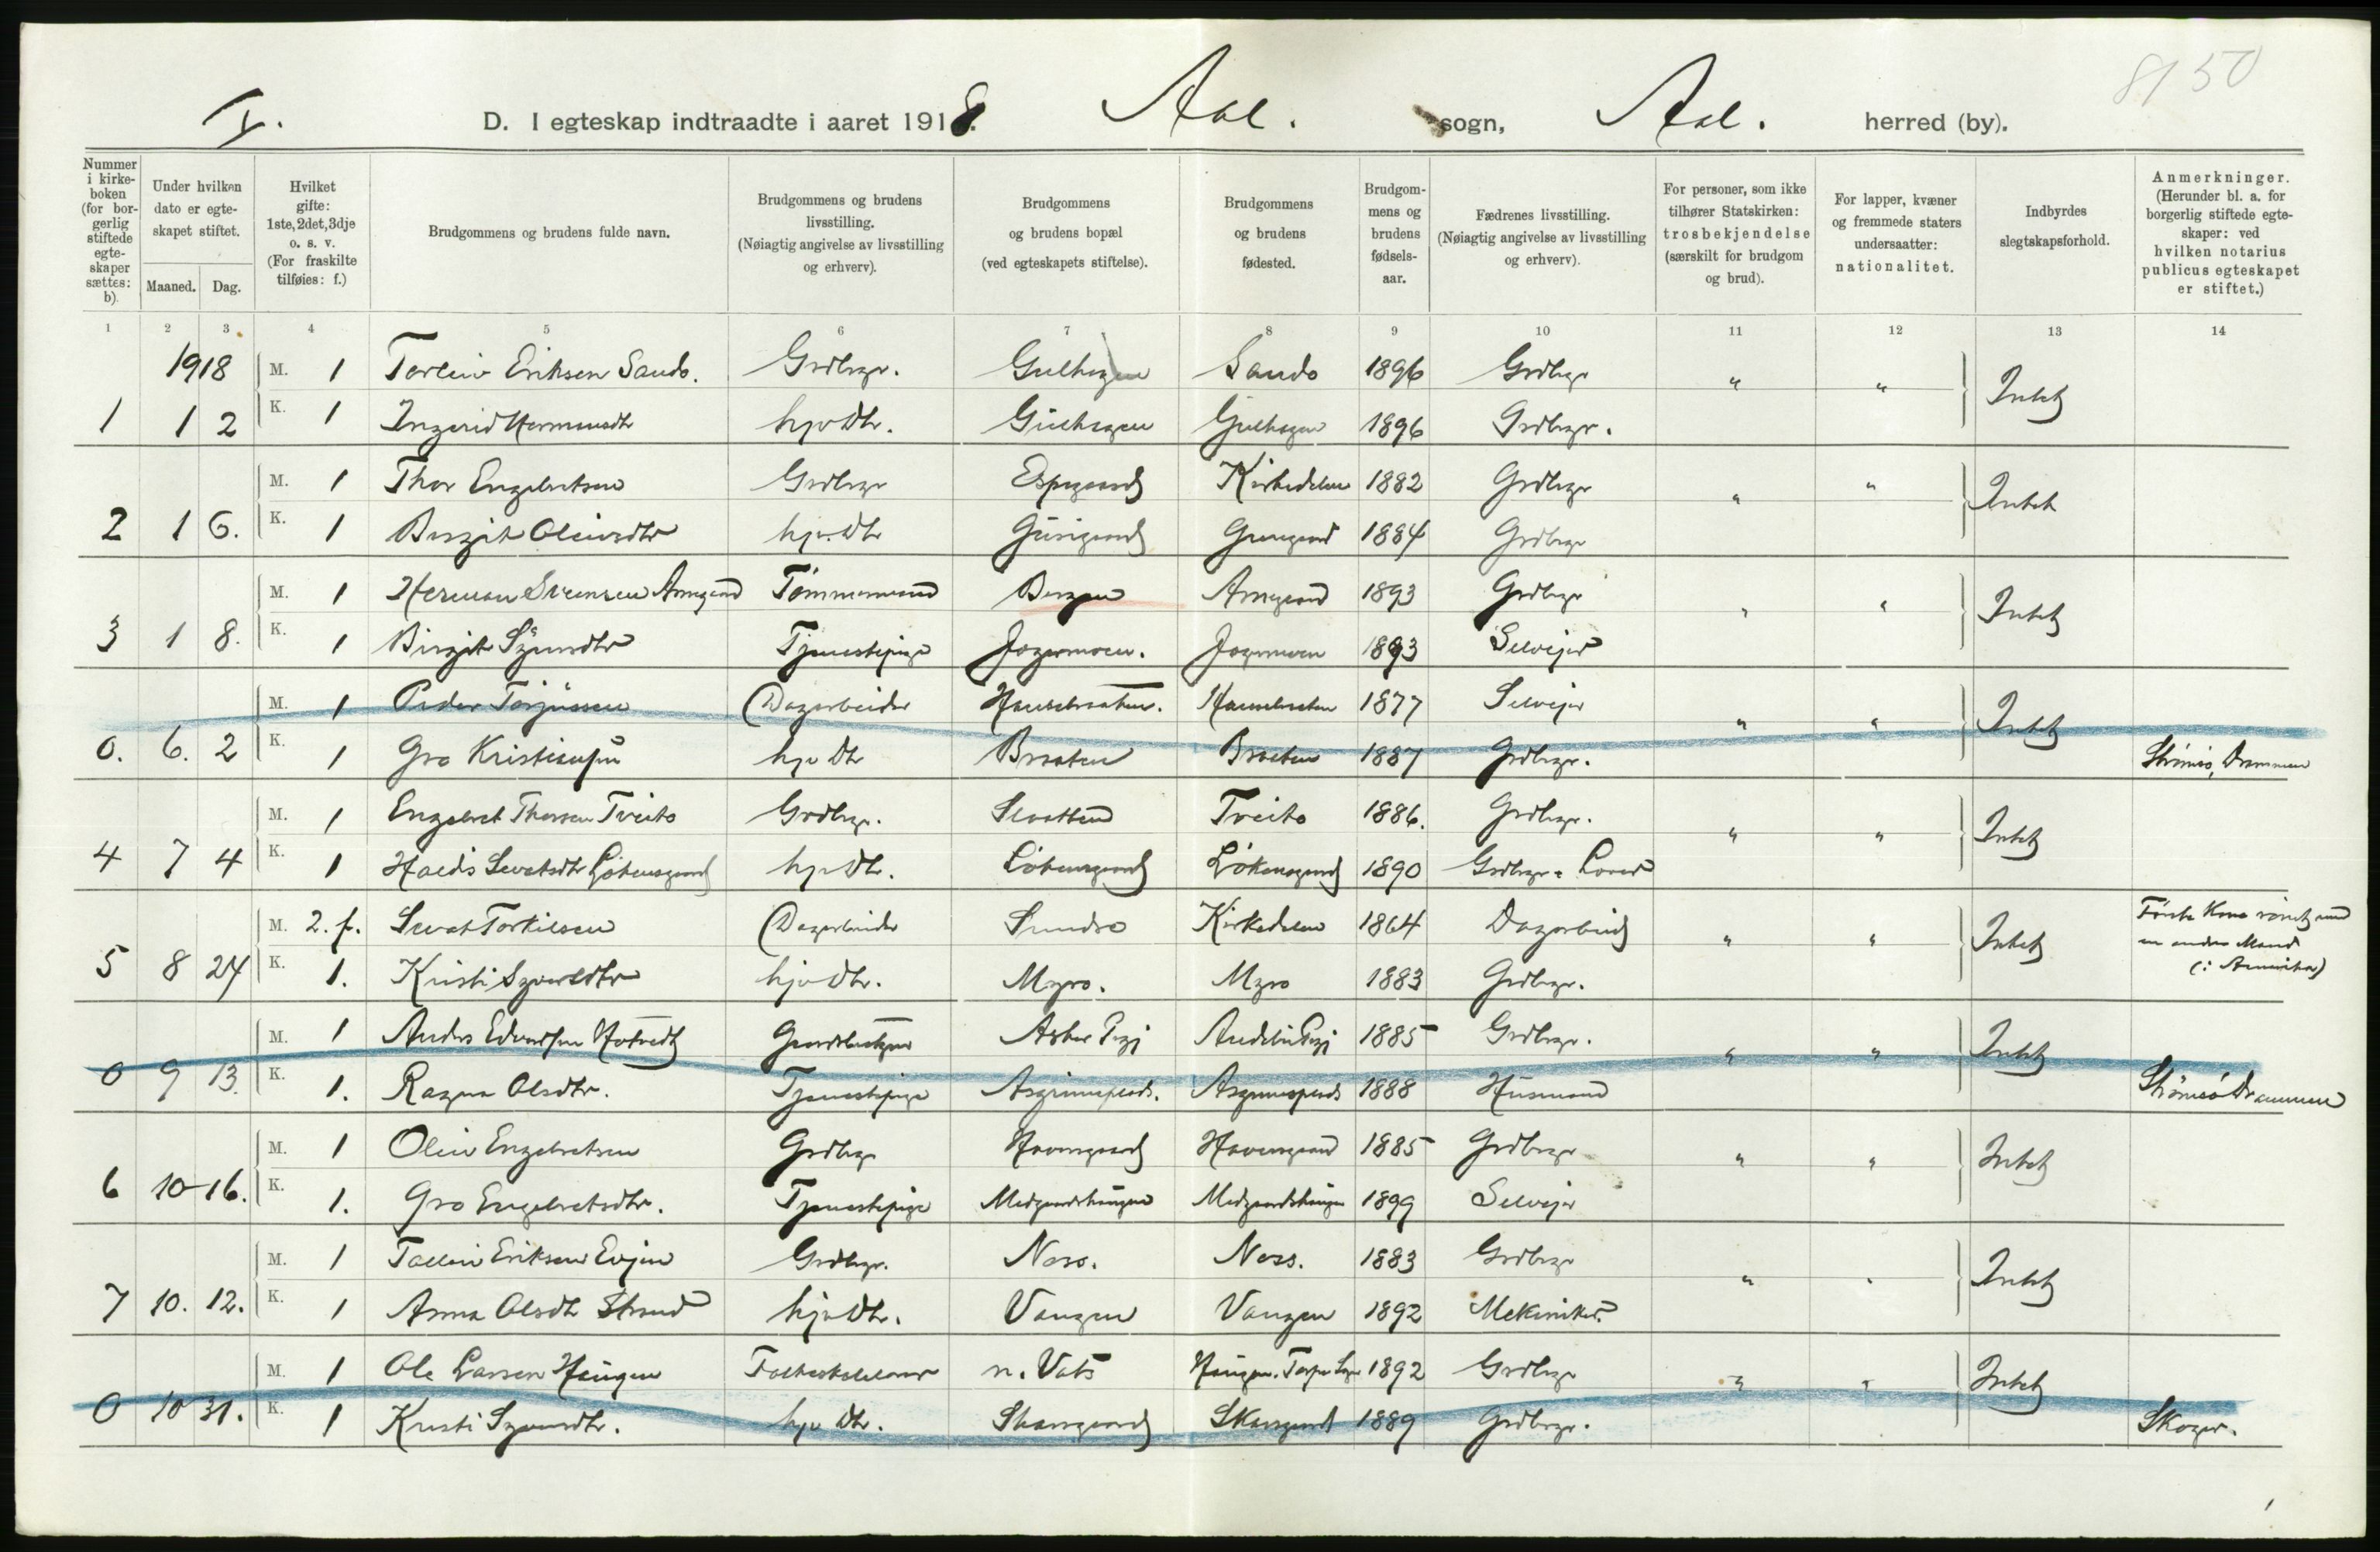 8150
D. I egteskap indtraadte i aaret 1918. Aal. sogn, Aal. herred (by).
Nummer i kirkeboken (for borgerlig stiftede egteskaper sættes: b).
Under hvilken dato er egteskapet stiftet.
Maaned. Dag.
Hvilket gifte: 1ste, 2det, 3dje o. s. v. (For fraskilte tilføies: f.)
Brudgommens og brudens fulde navn.
Brudgommens og brudens livsstilling. (Nøiagtig angivelse av livsstilling og erhverv).
Brudgommens og brudens bopæl (ved egteskapets stiftelse).
Brudgommens og brudens fødested.
Brudgommens og brudens fødselsaar.
Fædrenes livsstilling. (Nøiagtig angivelse av livsstilling og erhverv).
For personer, som ikke tilhører Statskirken: trosbekjendelse (særskilt for brudgom og brud).
For lapper, kvæner og fremmede staters undersaatter: nationalitet.
Indbyrdes slegtskapsforhold.
Anmerkninger. (Herunder bl. a. for borgerlig stiftede egteskaper: ved hvilken notarius publicus egteskapet er stiftet.)
1 2 3 4 5 6 7 8 9 10 11 12 13 14
1918 M. 1 Torleiv Eriksen Sando. Grdbrgr. Gulhagen Sando 1896 Grdbrgr " " Intet
1 1 2 K. 1 Ingerid Hermundtr hjv Dtr. Gulhagen Gulhagen 1896 Grdbrgr.
M. 1 Thor Engebretsen Grdbrgr Espegaard Kirkedelen 1882 Grdbrgr " " Intet
2 1 6. K. 1 Birgit Oleivsdtr hjv. Dtr Gurigaard Gurigaard 1884 Grdbrgr
M. 1 Herman Svensen Arnegaard Tømmermand Bergen Arnegaard 1893 Grdbrgr " " Intet
3 1 8. K. 1 Birgit Sjgurdtr Tjenestepige Jegermoen. Jegermoen 1893 Selveier
M. 1 Peder Torjussen Dagarbeider 1877 Selveier " " Intet
0. 6. 2 K. 1 Gro Kristiansen hjv Dtr Braaten Braaten 1887 Grdbrgr. Strømsø, Drammen
M. 1 Engebret Thorsen Tveito Grdbrgr. Tveito 1886. Grdbrgr. " " Intet
4 7 4 K. 1 Sevatsdtr Løkensgaard hjv Dtr. Løkensgaard Løkensgaard 1890 Grdbrgr
M. 2. f. Sevat Torkilsen Dagarbeider Sundre Kirkedelen 1864 Dagarbeid " " Intet Første Kone reiset med en anden Mand (i Amerika)
5 8 24 K. 1. Kristi Sjgurdtr hjv Dtr. Myro. Myro 1883 Grdbrgr.
M. 1 Anders Edvardsen Gaardbruker Asker 1885 Grdbrgr. " " Intet
0 9 13. K. 1. Ragna Olsdtr. Tjenestepige Asgrimsplads. Asgrimsplads 1888 Husmand Strømsø Drammen
M. 1 Oleiv Engebretsen Grdbrgr Hovensgaard Hovensgaard 1885 Grdbrgr " " Intet
6 10 16. K. 1. Gro Engebretsdtr. Tjenestepige Medgaardshaugen Medgaardshaugen 1899 Selveier
M. 1 Tolleiv Eriksen Evjen Grdbrgr. Ness. Ness. 1883 Grdbrgr " " Intet
7 10. 12. K. 1 Anna Olsdtr Strand hjv Dtr. Vangen Vangen 1892 Mekaniker.
M. 1 Ole Larsen Haugen Folkeskolelærer n. Vats Haugen, Torpe 1892 Grdbrgr " " Intet
0 10 31. K. 1 Kristi Sjgurdtr. hjv Dtr. Skarsgaard Skarsgaard 1889 Grdbrgr. Skoger.